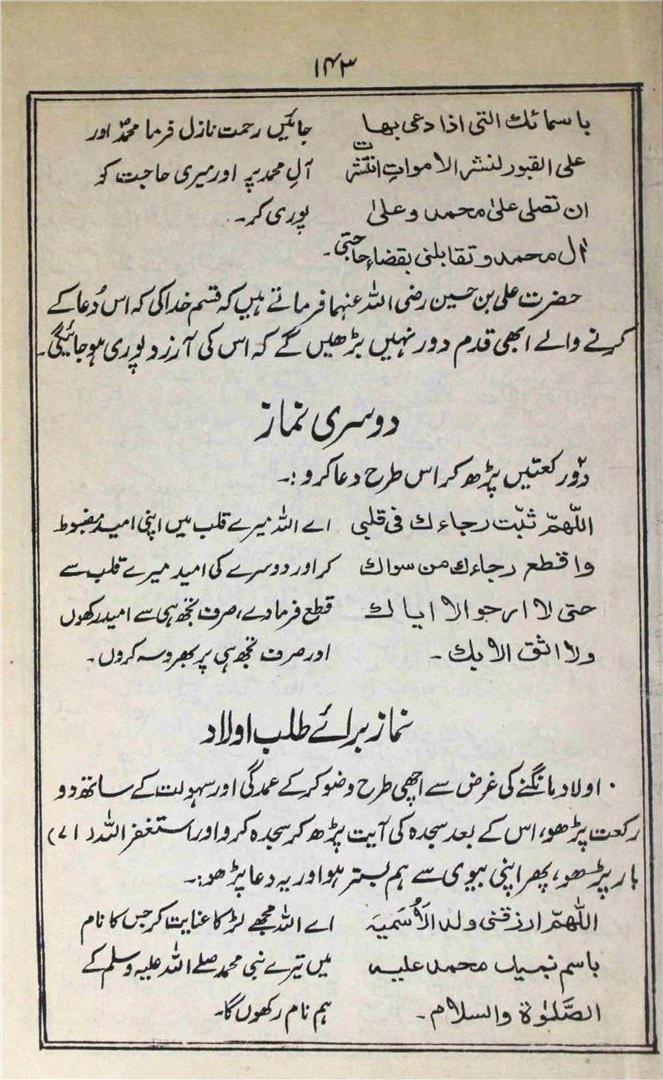 ۱۴۳
باسمائك التی اذا دعی بها جائیں رحمت نازل فرما محمدؐ اور
علی القبور لنشر الاموات انتشرت آلِ محمد پر اور میری حاجت کو
ان تصلی علیٰ محمد وعلیٰ پوری کر۔
اٰل محمد و تقابلنی بقضاء حاجتی۔
حضرت علی بن حسین رضی اللہ عنہما فرماتے ہیں کہ قسم خدا کی کہ اس دُعا کے
کرنے والے ابھی قدم دور نہیں بڑھیں گے کہ اس کی آرزو پوری ہو جائیگی۔
دوسری نماز
دو رکعتیں پڑھ کر اس طرح دعا کرو:۔
اللّٰهمّ ثبّت رجاءك فی قلبی اے اللہ میرے قلب میں اپنی امید مضبوط
واقطع رجاءك من سواك کر اور دوسرے کی امید میرے قلب سے
حتی لا ارجو الا ایاك قطع فرمادے، صرف تجھ ہی سے امید رکھوں
ولا اثق الا بك۔ اور صرف تجھ ہی پر بھروسہ کروں۔
نماز برائے طلب اولاد
اولاد مانگنے کی غرض سے اچھی طرح وضو کر کے عمدگی اور سہولت کے ساتھ دو
رکعت پڑھو، اس کے بعد سجدہ کی آیت پڑھ کر سجدہ کرو اور استغفر اللہ (۷۱)
بار پڑھو، پھر اپنی بیوی سے ہم بستر ہو اور یہ دعا پڑھو:۔
اللّٰهمّ ارزقنی ولد الاُسمیہ اے اللہ مجھے لڑکا عنایت کر جس کا نام
باسم نبیك محمد علیہ میں تیرے نبی محمد صلے اللہ علیہ وسلم کے
الصَّلوٰة والسلام۔ ہم نام رکھوں گا۔